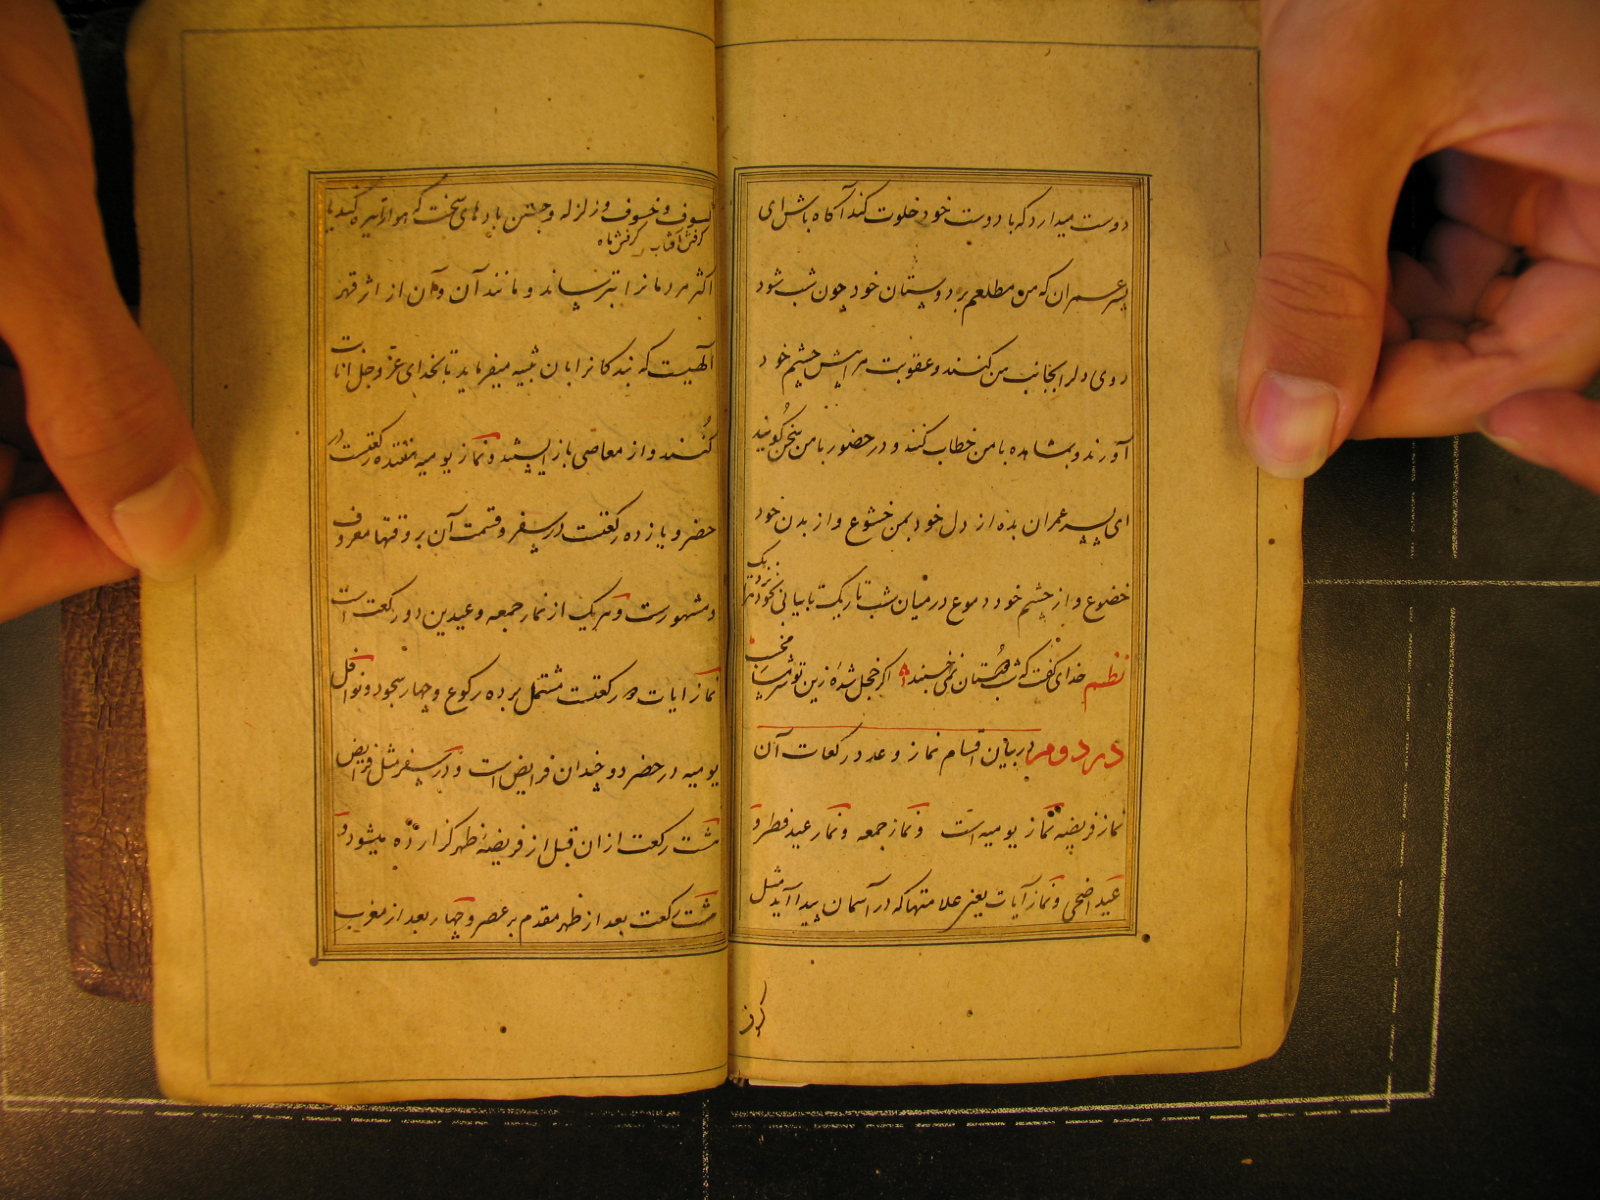 دوست میدارد که با دوست خود خلوت کند آگاه باش ای
پسر عمران که من مطلعم بر دوستان خود چون شب شود
روی دلرا بجانب من کنند و عقوبت مرا پیش چشم خود
آورند و بمشاهده با من خطاب کنند و در حضور با من سخن گویند
ای پسر عمران بده از دل خود بمن خشوع و از بدن خود
خضوع و از چشم خود دموع در میان شب تاریک تا بیابی بخود مرا
نزدیک
نظم خدای گفت که شب دوستان نمی خسبند اگر خجل شدهٔ زین و شرمسار
مخسب
در دوم در بیان اقسام نماز و عدد رکعات آن
نماز فریضه نماز یومیه است و نماز جمعه و نمار عید فطر و
عید اضحی و نماز آیات یعنی علامتها که در آسمان پیدا آید مثل
کسوف
کسوف و خسوف و زلزله و جستن بادهای سخت که هوا را تیره کند یا
گرفتن آفتاب گرفتن ماه
اکثر مردمانرا بترساند و مانند آن و آن از اثر قهر
الهیست که بندگانرا بان تنبیه میفرماید تا بخدای عز و جل انابت
کنند و از معاصی باز ایستند و نماز یومیه هفده رکعتست در
حضر و یازده رکعتست در سفر و قسمت آن بر وقتها معروف
و مشهورست و هریک از نماز جمعه و عیدین دو رکعت است
نماز آیات دو رکعتست مشتمل بر ده رکوع و چهار سجود و نوافل
یومیه در حضر دو چندان فرایض است و در سفر مثل فرایض
هشت رکعت از ان قبل از فریضهٔ ظهر گزارده میشود و
هشت رکعت بعد از ظهر مقدم بر عصر و چهار بعد از مغرب